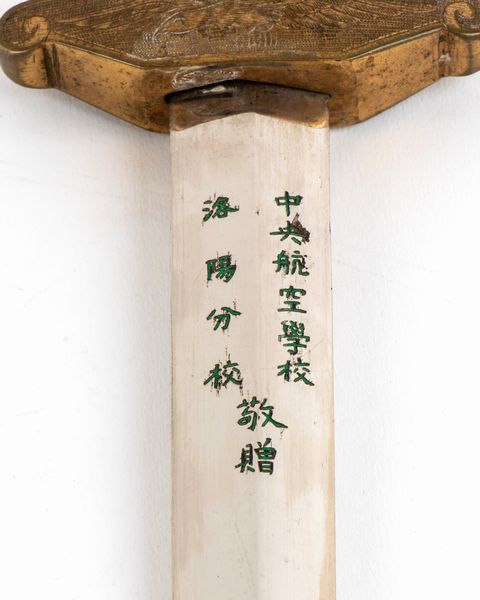 中央航空學校
洛陽分校
敬贈